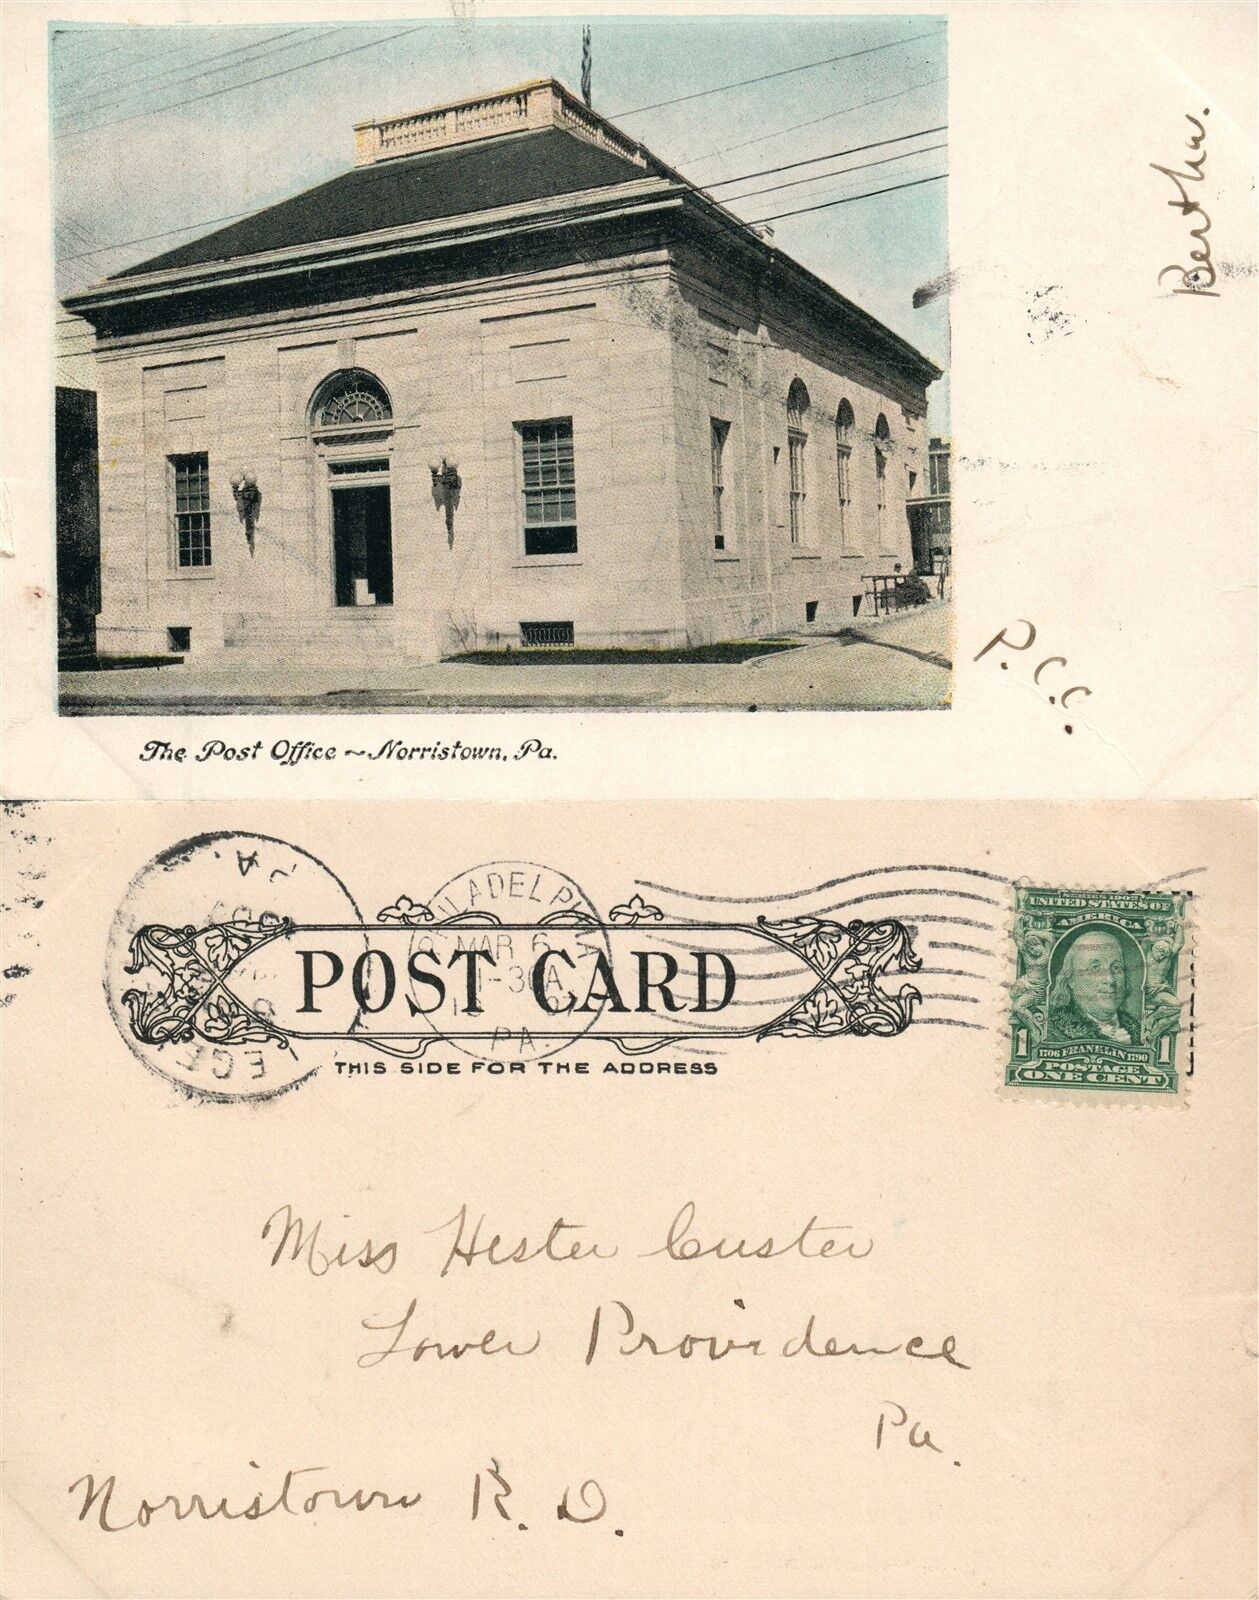 Bertha.
P.C.C.
The Post Office ~ Norristown, Pa.
PA.
PHILADELPHIA
MAR 6
PA.
POST CARD
THIS SIDE FOR THE ADDRESS
UNITED STATES OF
AMERICA
1 1
1706 FRANKLIN 1790
POSTAGE
ONE CENT
Miss Hester Custer
Lower Providence
Pa.
Norristown R. D.